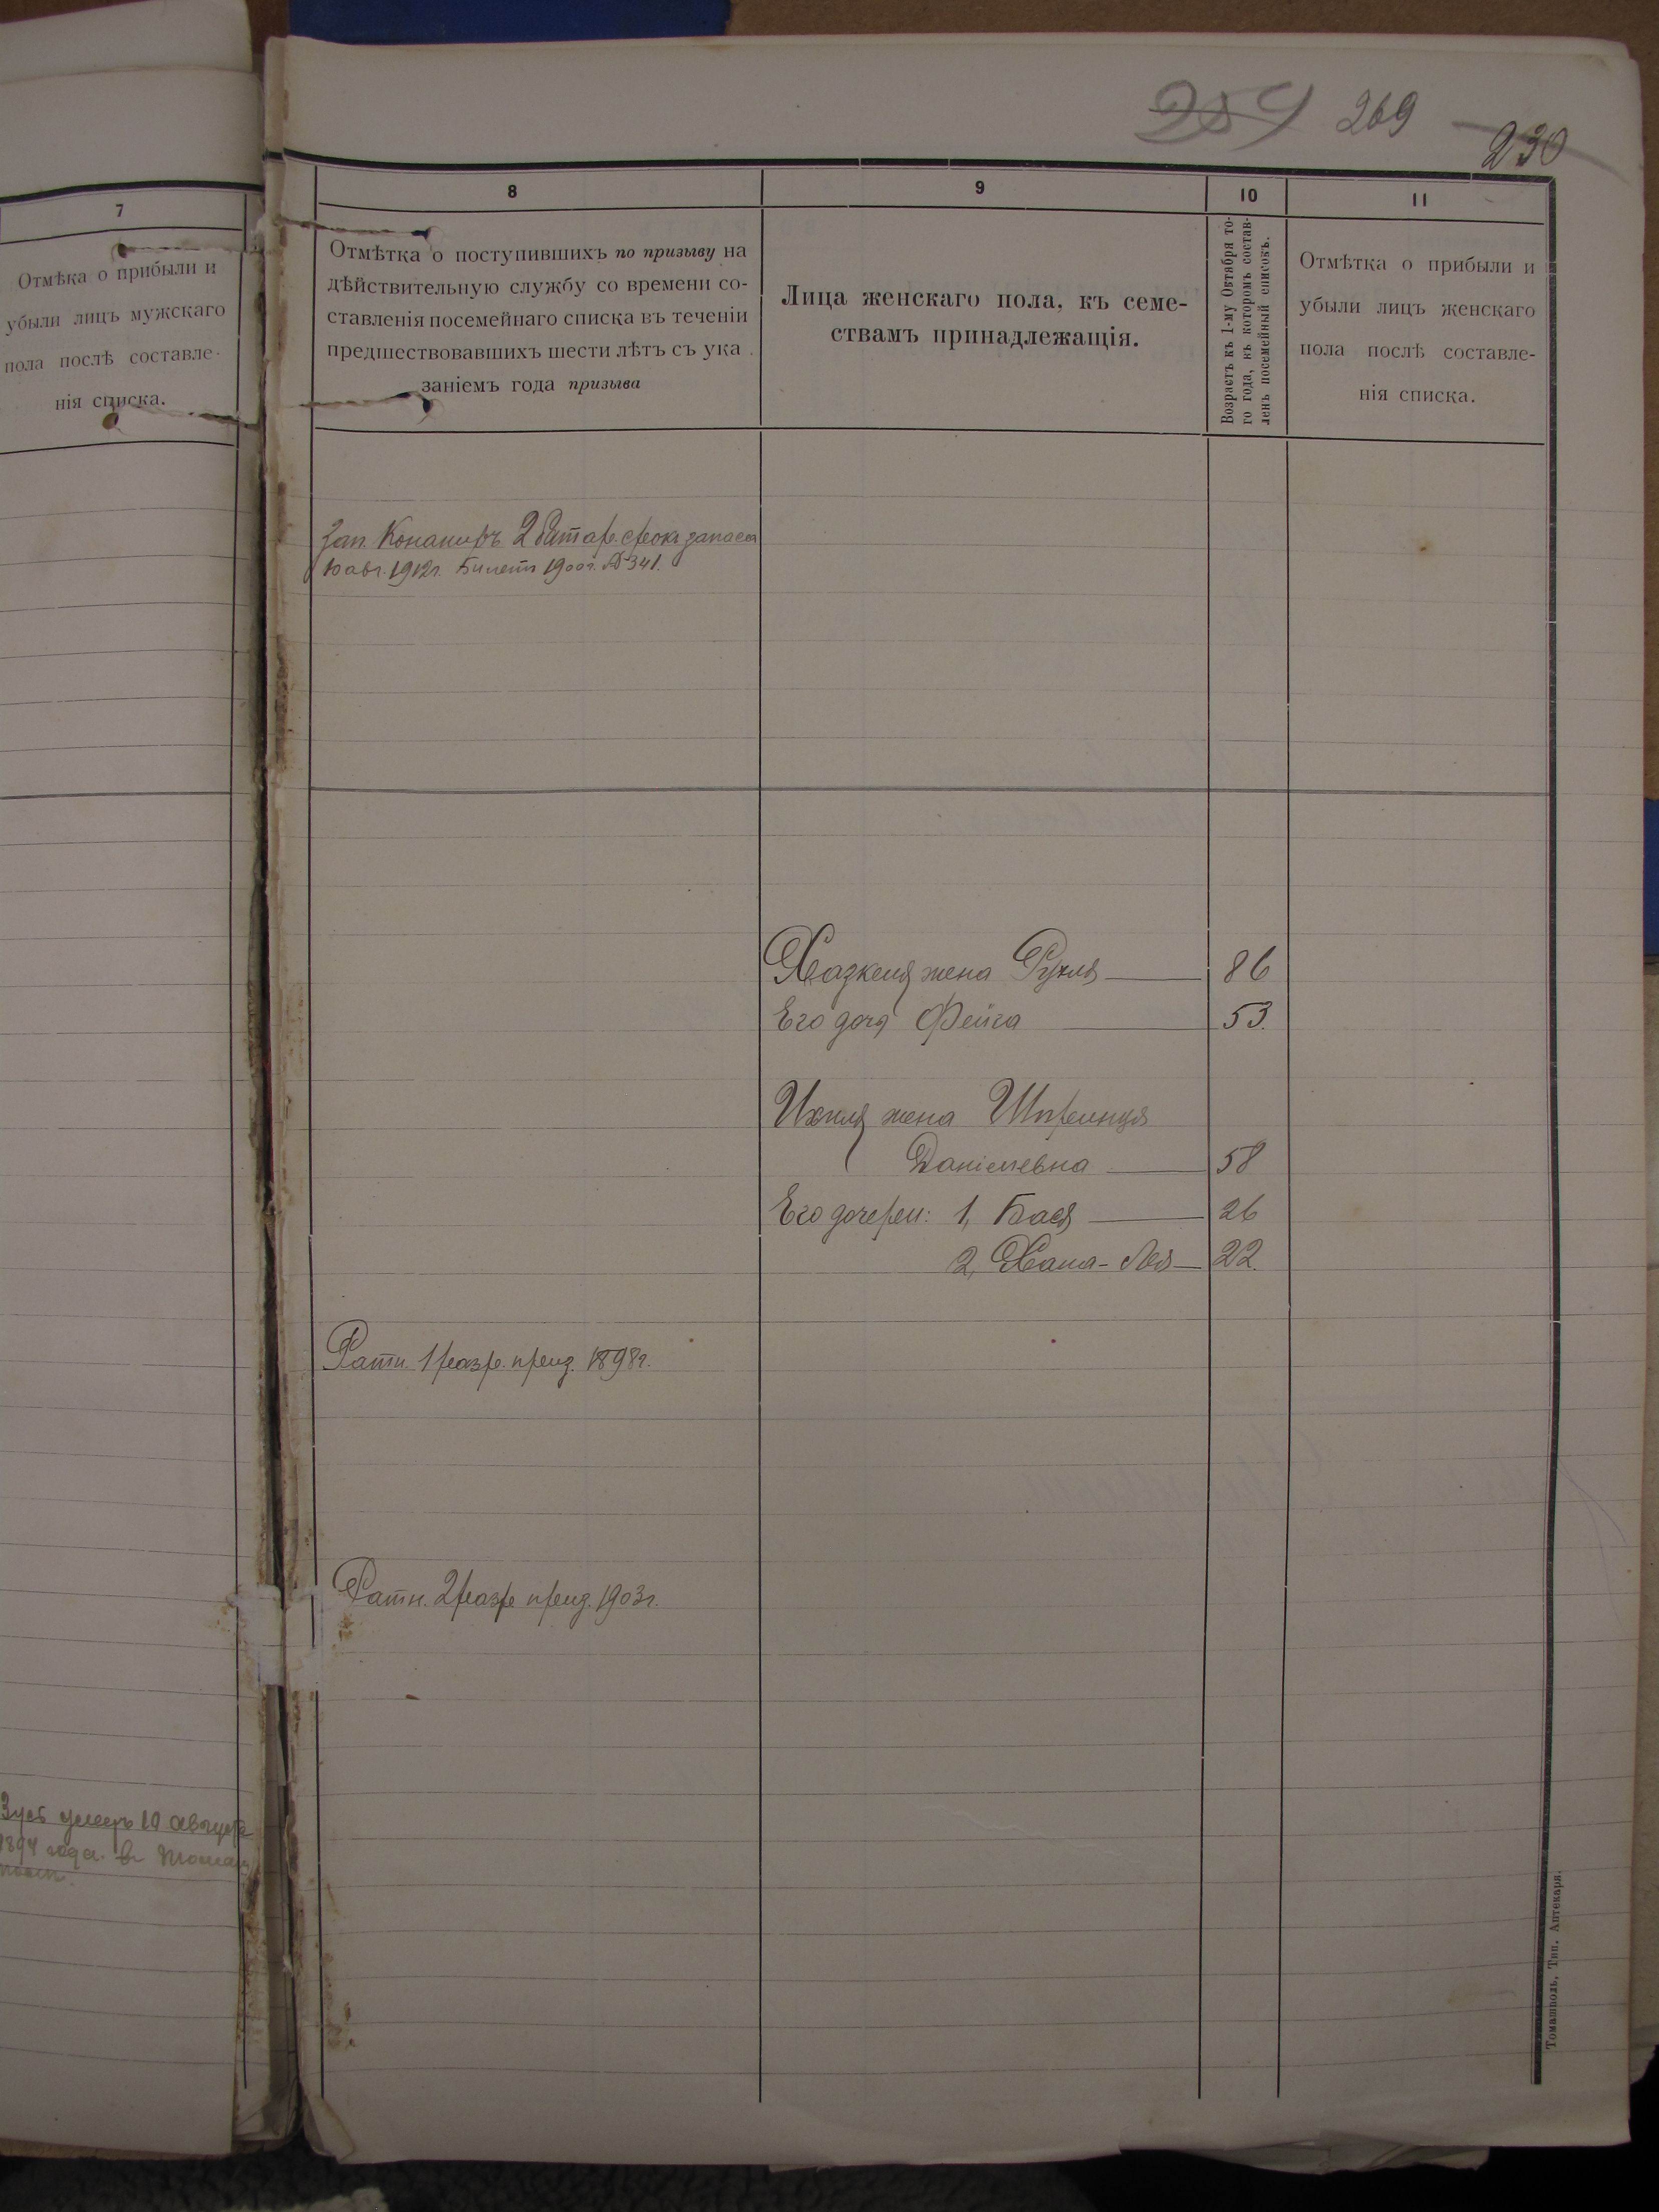 254 269 230
7
Отмѣка о прибыли и
убыли лицъ мужскаго
пола послѣ составле-
нія списка.
Зусь умеръ 10 августа
1894 года. в
8
Отмѣтка о поступившихъ по призыву на
дѣйствительную службу со времени со-
ставленія посемейнаго списка въ теченіи
предшествовавшихъ шести лѣтъ съ ука
заніемъ года призыва
9
Лица женскаго пола, къ семе-
ствамъ принадлежащія.
10
Возрастъ къ 1-му Октября то-
го года, къ которомъ состав-
ленъ посемейный списокъ.
11
Отмѣтка о прибыли и
убыли лицъ женскаго
пола послѣ составле-
нія списка.
Зап. Конониръ 2 батар. срокъ запаса
авг. 1912г. Билетъ 1900г. № 341.
Хазкеля жена Рухля 86
Его дочь Фейга 53.
Ихиля жена Шпринця
Даніелевна 58
Его дочери: 1, Бася 26
2, Хана-Лея 22.
Ратн. 1 разр. приз. 1898г.
Ратн. 2 разр приз. 1903г.
Томашполь, Тип. Аптекаря.